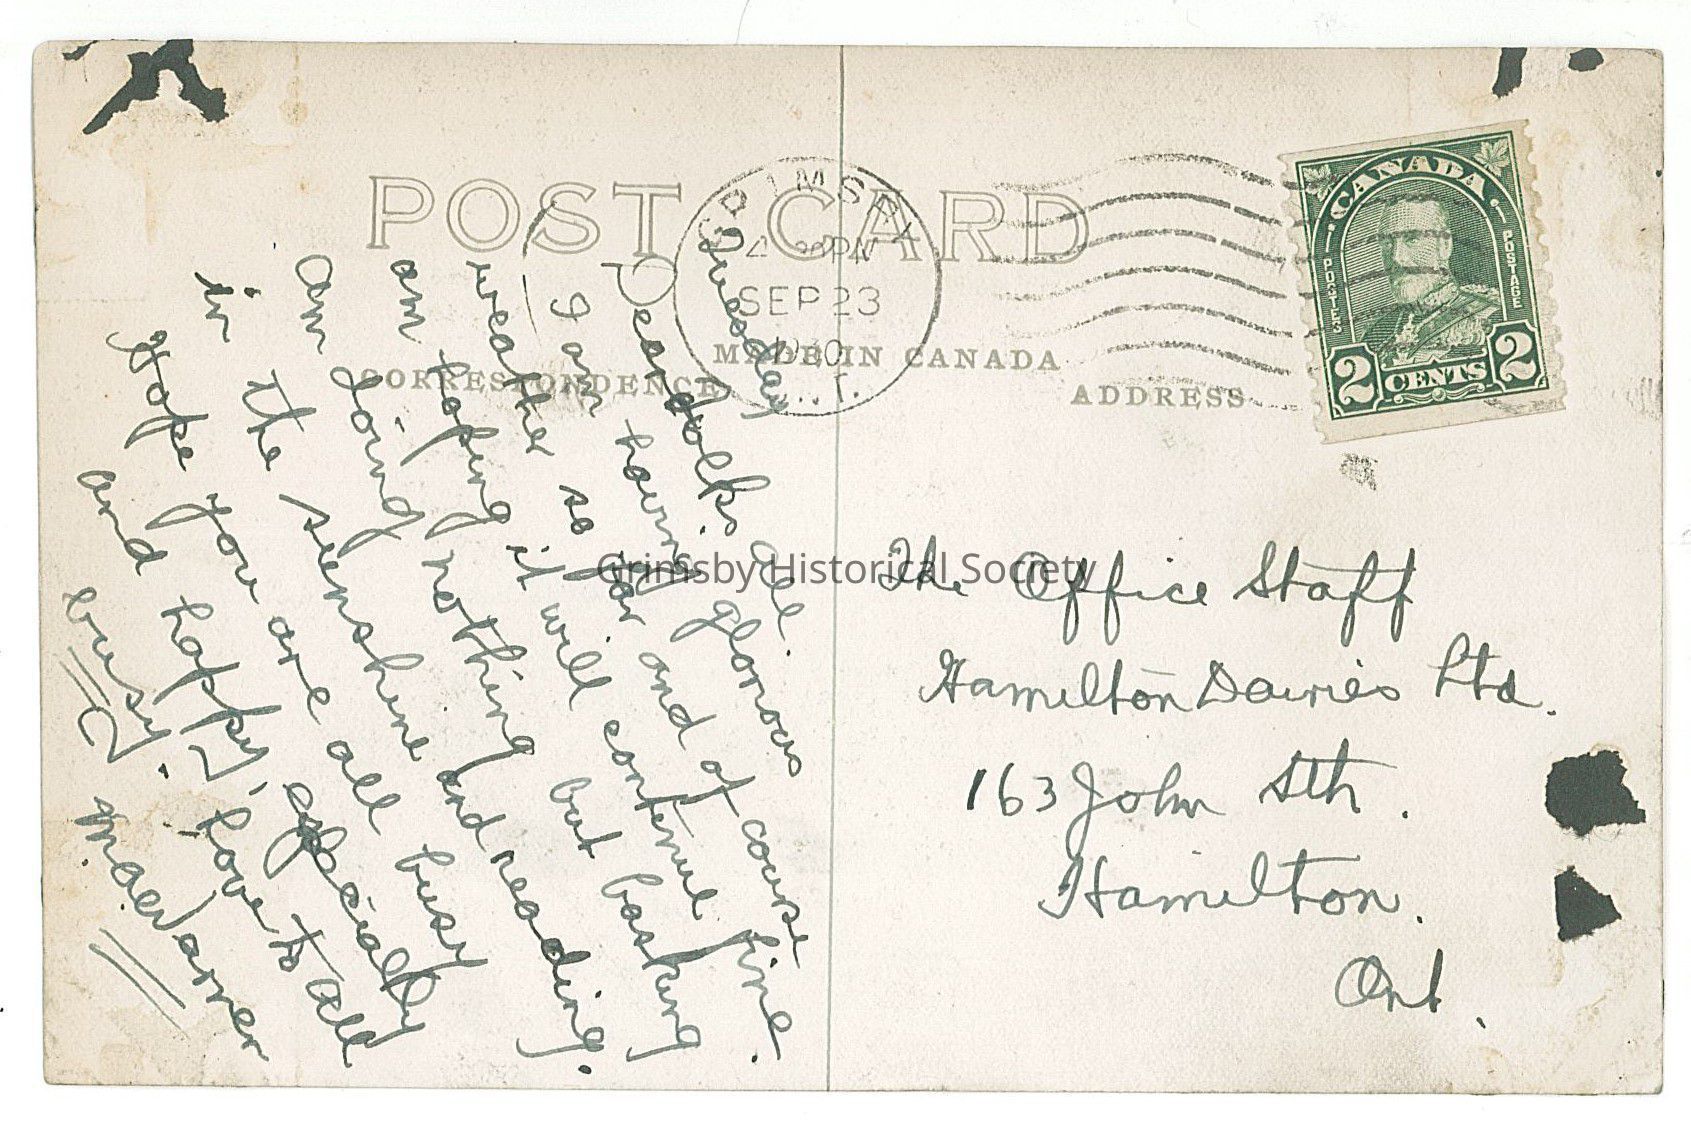 POST CARD
CORRESPONDENCE
MADE IN CANADA
ADDRESS
GRIMSBY
PM
SEP 23
CANADA
POSTES
POSTAGE
2 CENTS 2
Tuesday
Dear folks all.
I am having glorious
weather so far and of course
am hoping it will continue fine.
Am doing nothing but basking
in the sunshine and reading.
Hope you are all busy
and happy, especially
busy. Love to all
The Office Staff
Hamilton Dairies Ltd.
163 John Sth.
Hamilton.
Ont.
Grimsby Historical Society